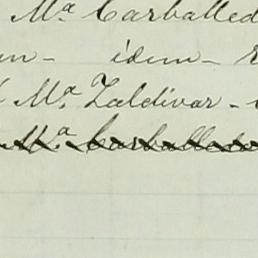 Mª Carballed
- idem -
Mª Zaldivar -
Mª Carballeda